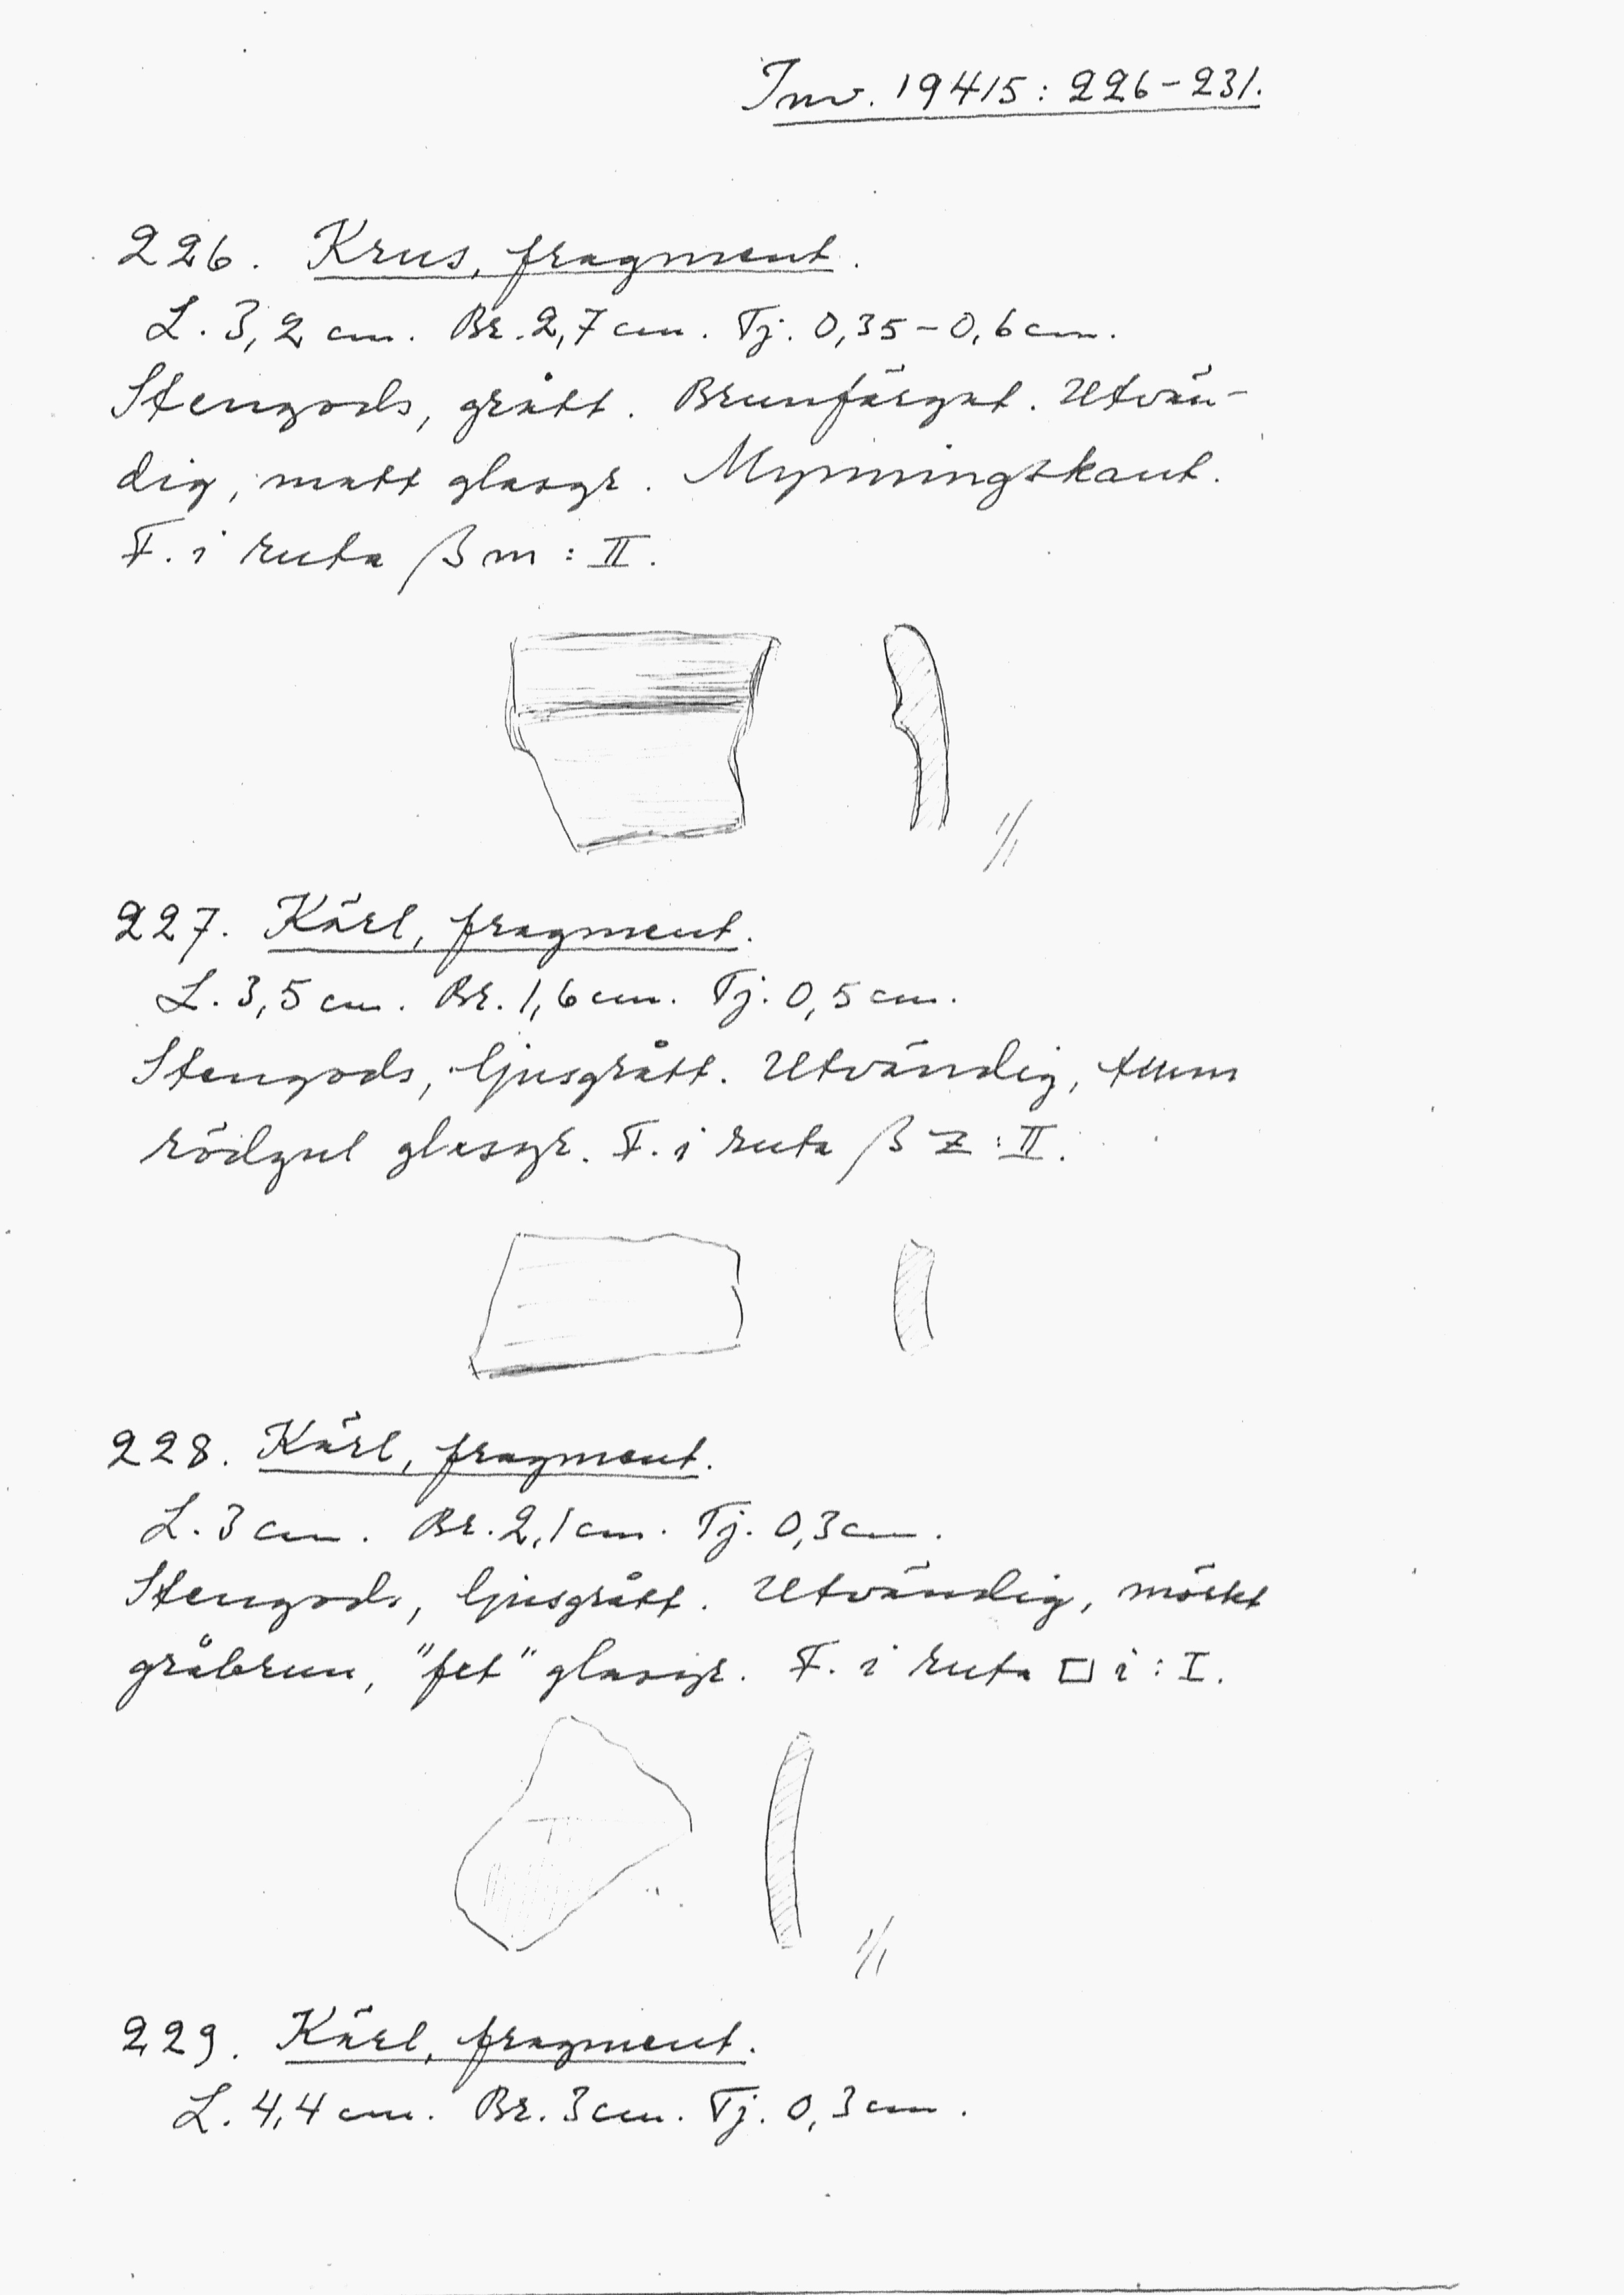 Inv. 19415: 226-231.
226. Krus, fragment.
L. 3,2 cm. Br. 2,7 cm. Tj. 0,35-0,6 cm.
Stengods, grått. Brunfärgat. Utvän-
dig, matt glasyr. Mynningskant.
F. i ruta β m : II.
1/1
227. Kärl, fragment.
L. 3,5 cm. Br. 1,6 cm. Tj. 0,5 cm.
Stengods, ljusgrått. Utvändig, tunn
rödgul glasyr. F. i ruta β z : II.
228. Kärl, fragment.
L. 3 cm. Br. 2,1 cm. Tj. 0,3 cm.
Stengods, ljusgrått. Utvändig, mörkt
gråbrun, "fet" glasyr. F. i ruta □ i : I.
1/1
229. Kärl, fragment.
L. 4,4 cm. Br. 3 cm. Tj. 0,3 cm.